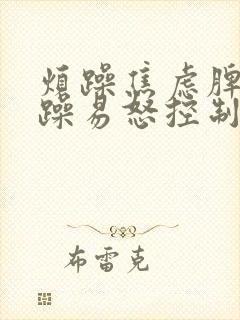 煩躁焦虑脾
躁易怒控制
布雷克